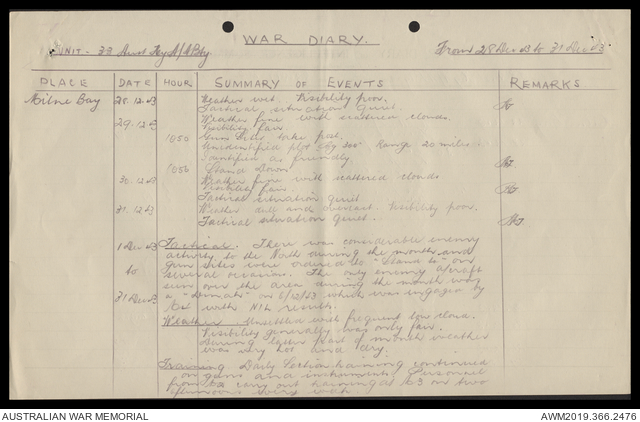 WAR DIARY.
UNIT - 33 Aust Hy A/A Bty From 28 Dec 43 to 31 Dec 43
PLACE DATE HOUR SUMMARY OF EVENTS REMARKS
Milne Bay 28.12.43 Weather wet. Visibility poor.
Tactical situation quiet.
29.12.43 Weather fine with scattered clouds.
Visibility fair.
1050 Gun Sites take post.
Unidentified plot Range 20 miles.
Identified as friendly.
1056 Stand Down.
30.12.43 Weather fine with scattered clouds
Visibility fair.
Tactical situation quiet
31.12.43 Weather dull and overcast. Visibility poor.
Tactical situation quiet.
1 Dec 43 Tactical. There was considerable enemy
activity to the North during the month and
to gun sites were ordered to "Stand to" on
several occasions. The only enemy aircraft
seen over the area during the month was
31 Dec 43 a "Dinah" on 6/12/43 which was engaged by
with NIL results.
Weather Unsettled with frequent low cloud.
Visibility generally was only fair.
During latter part of month weather
was very hot and dry.
Training Daily Section training continued
on guns and instruments. Personnel
from carry out training at on two
afternoons every week
AUSTRALIAN WAR MEMORIAL AWM2019.366.2476